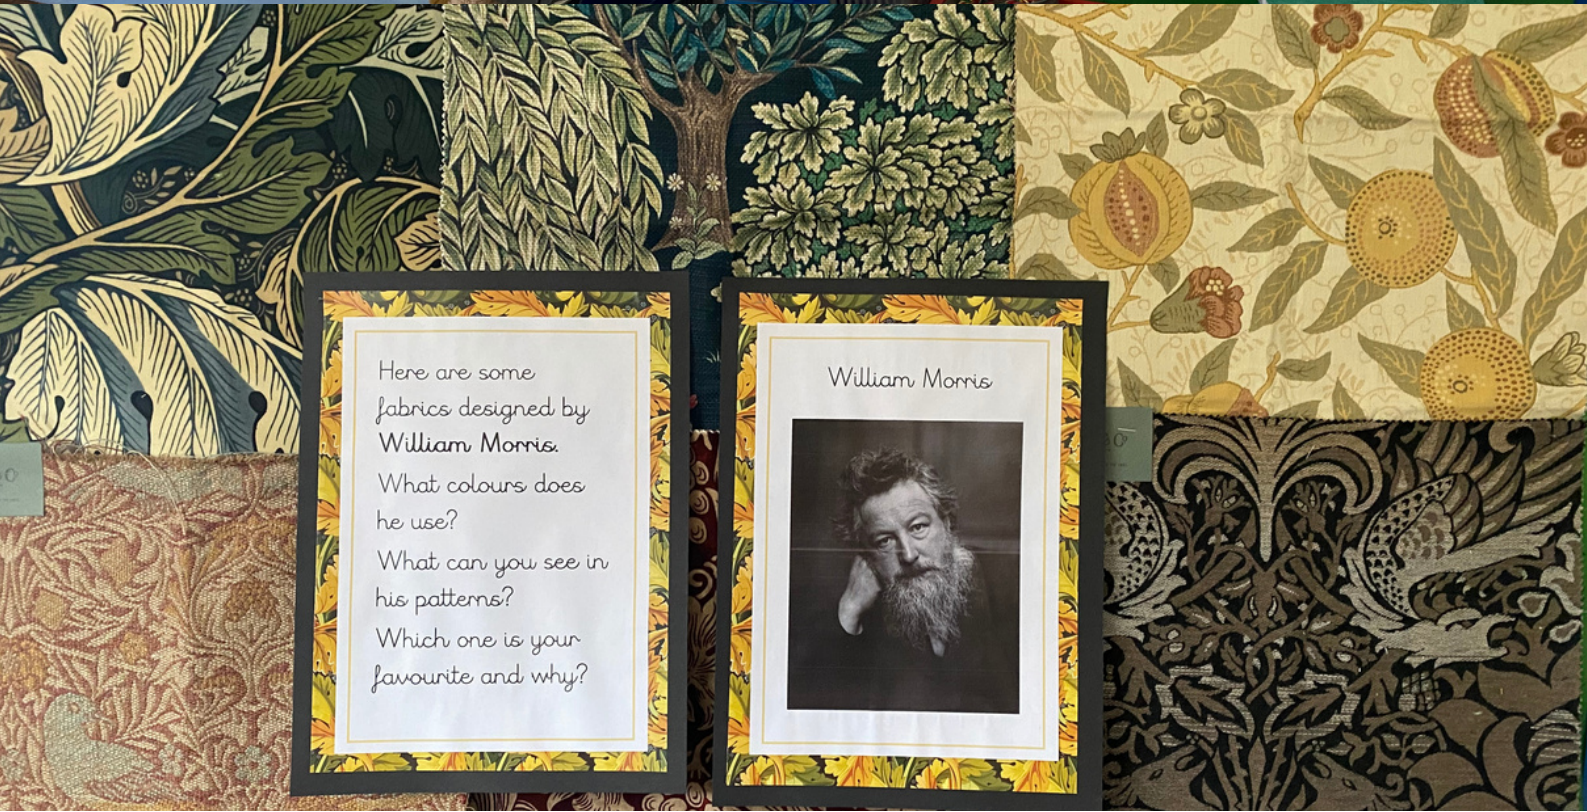 Here are some
fabrics designed by
William Morris.
What colours does
he use?
What can you see in
his patterns?
Which one is your
favourite and why?
William Morris